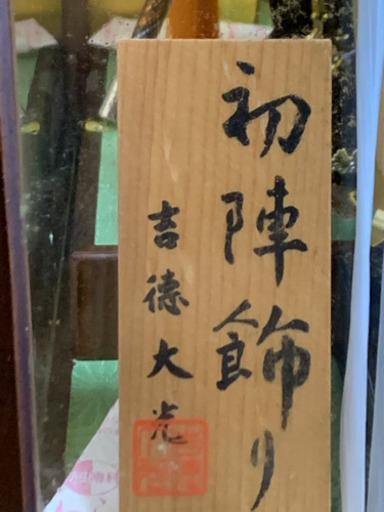 初陣飾り
吉徳大光